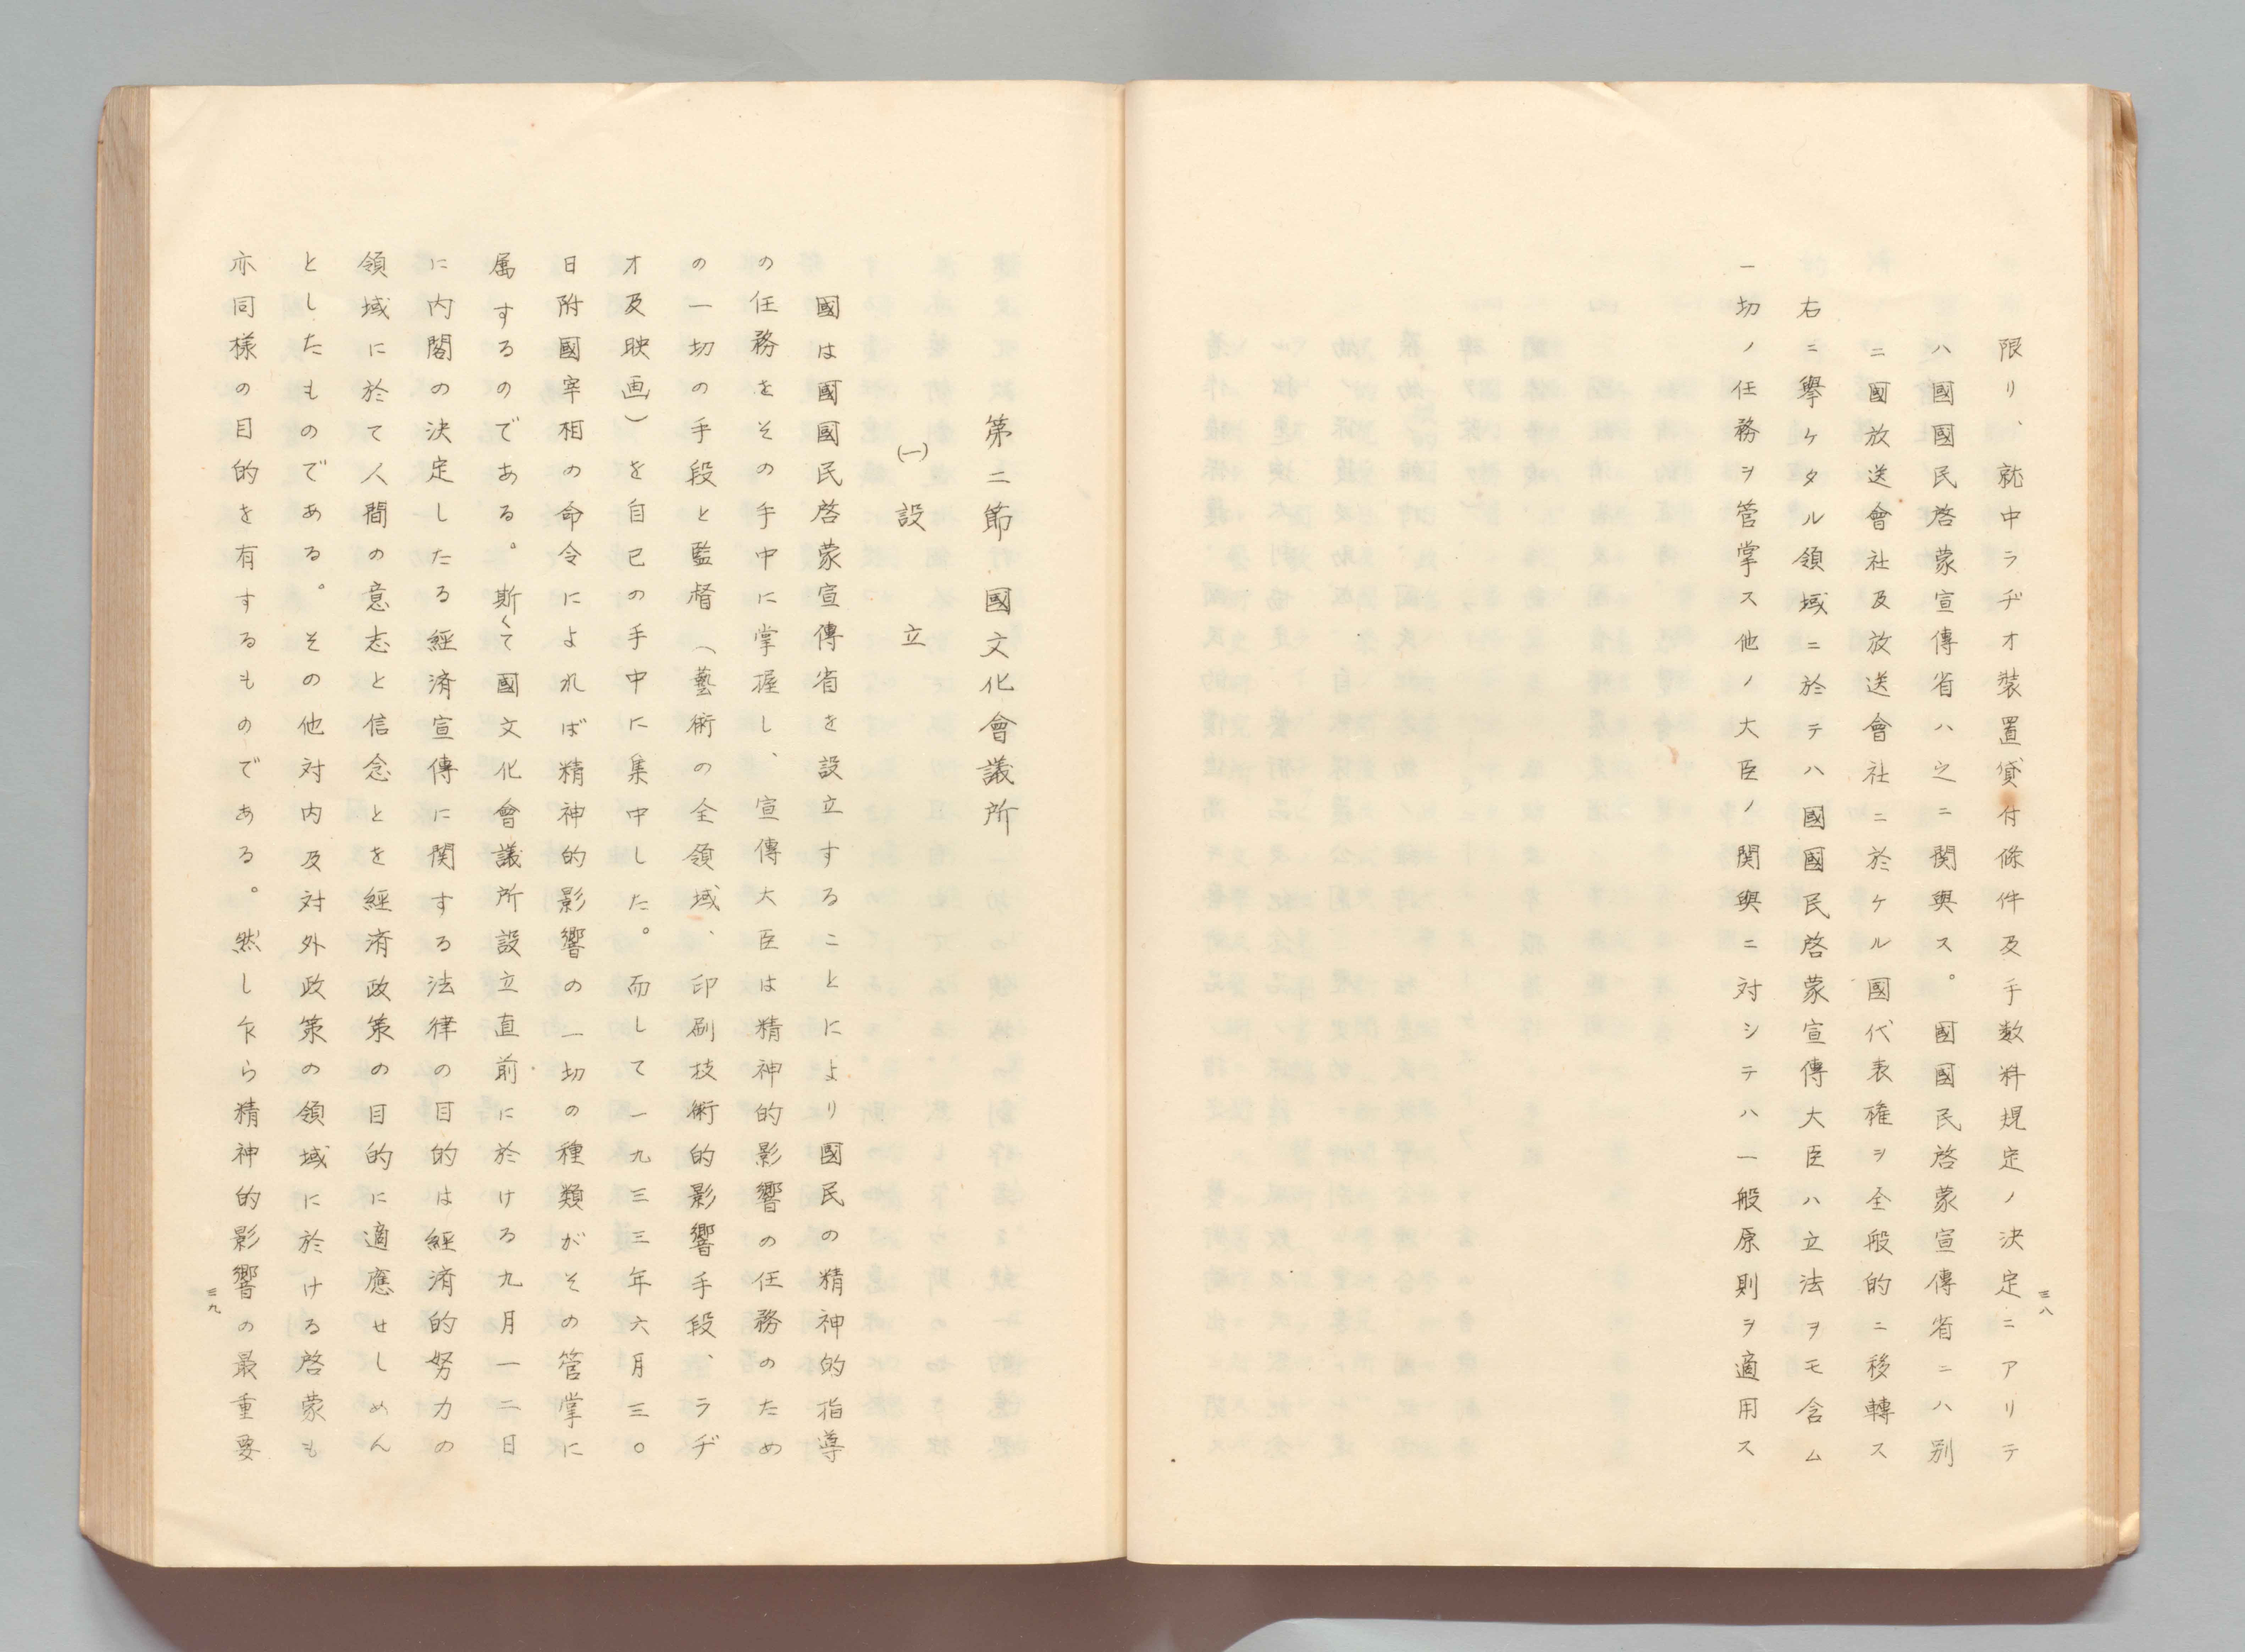 限リ、就中ラヂオ裝置貸付條件及手数料規定ノ決定ニアリテ
ハ國國民啓蒙宣傳省ハ之ニ関與ス。國國民啓蒙宣傳省ニハ別
ニ國放送會社及放送會社ニ於ケル國代表権ヲ全般的ニ移轉ス
右ニ擧ケタル領域ニ於テハ國國民啓蒙宣傳大臣ハ立法ヲモ含ム
一切ノ任務ヲ管掌ス他ノ大臣ノ関與ニ対シテハ一般原則ヲ適用ス
三八
第二節 國文化會議所
(一) 設立
國は國國民啓蒙宣傳省を設立することにより國民の精神的指導
の任務をその手中に掌握し、宣傳大臣は精神的影響の任務のため
の一切の手段と監督（藝術の全領域、印刷技術的影響手段、ラヂ
オ及映画）を自己の手中に集中した。而して一九三三年六月三〇
日附國宰相の命令によれば精神的影響の一切の種類がその管掌に
属するのである。斯くて國文化會議所設立直前に於ける九月一二日
に内閣の決定したる経済宣傳に関する法律の目的は経済的努力の
領域に於て人間の意志と信念とを経済政策の目的に適應せしめん
としたものである。その他対内及対外政策の領域に於ける啓蒙も
亦同様の目的を有するものである。然し乍ら精神的影響の最重要
三九